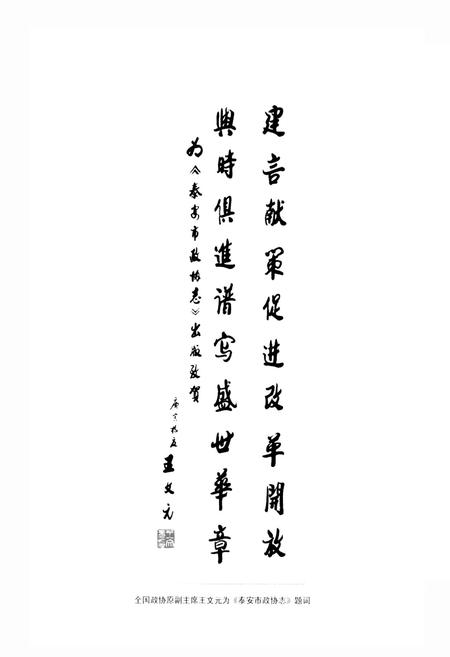 建言献策促进改革開放
與時俱進谱写盛世華章
为《泰安市政协志》出版致贺
庚寅孟夏
王文元
全国政协原副主席王文元为《泰安市政协志》题词